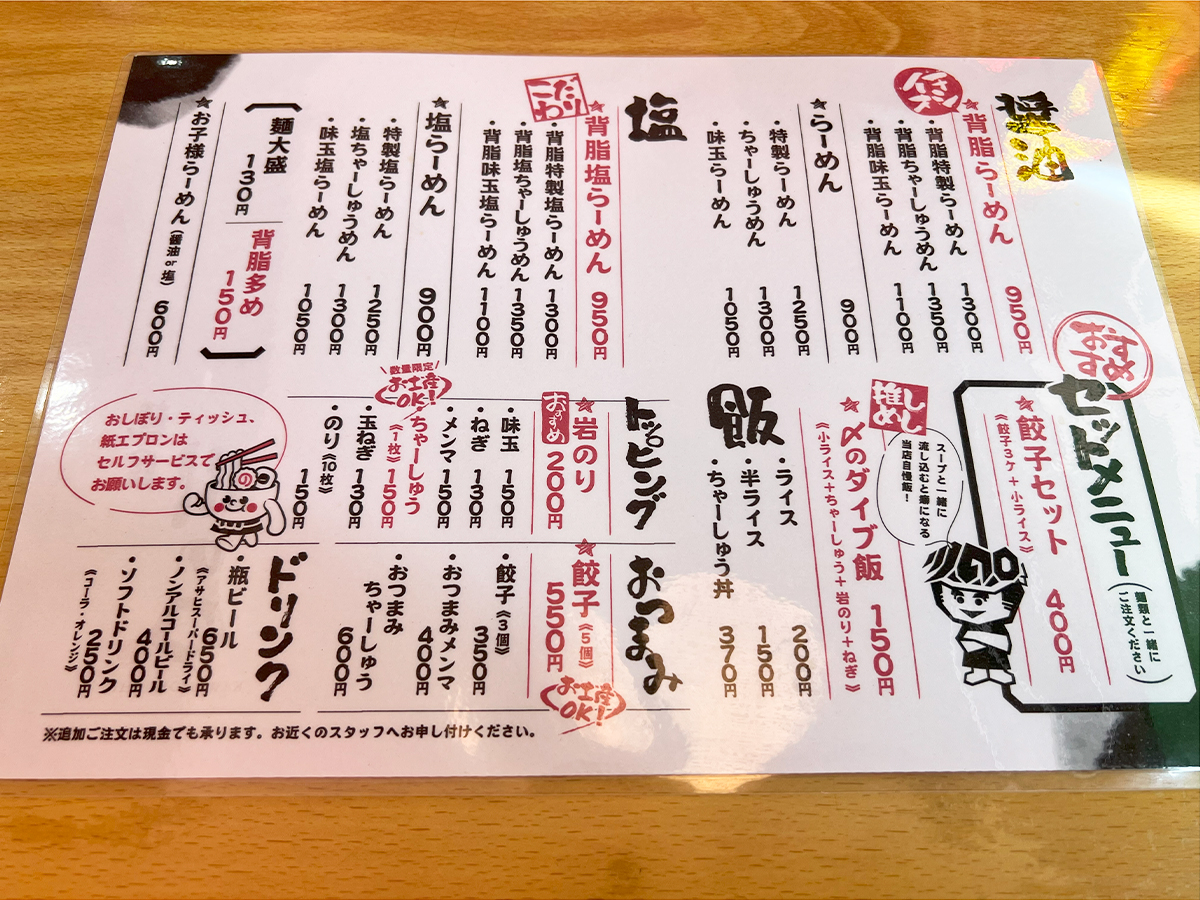 醤油
イチオシ
★背脂らーめん 950円
・背脂特製らーめん 1300円
・背脂ちゃーしゅうめん 1350円
・背脂味玉らーめん 1100円
★らーめん 900円
・特製らーめん 1250円
・ちゃーしゅうめん 1300円
・味玉らーめん 1050円
塩
こだわり
★背脂塩らーめん 950円
・背脂特製塩らーめん 1300円
・背脂塩ちゃーしゅうめん 1350円
・背脂味玉塩らーめん 1100円
★塩らーめん 900円
・特製塩らーめん 1250円
・塩ちゃーしゅうめん 1300円
・味玉塩らーめん 1050円
麺大盛 130円
背脂多め 150円
★お子様らーめん(醤油or塩) 600円
おすすめ
セットメニュー
(麺類と一緒にご注文ください)
★餃子セット 400円
《餃子3ケ+小ライス》
スープと一緒に
流し込むと癖になる
当店自慢飯!
推しめし
★〆のダイブ飯 150円
《小ライス+ちゃーしゅう+岩のり+ねぎ》
飯
・ライス 200円
・半ライス 150円
・ちゃーしゅう丼 370円
トッピング
おすすめ
★岩のり 200円
・味玉 150円
・ねぎ 130円
・メンマ 150円
数量限定
お土産OK!
・ちゃーしゅう《1枚》 150円
・玉ねぎ 130円
・のり《10枚》 150円
おつまみ
★餃子《5個》 550円
お土産OK!
・餃子《3個》 350円
・おつまみメンマ 400円
・おつまみ
ちゃーしゅう 600円
ドリンク
・瓶ビール 650円
《アサヒスーパードライ》
・ノンアルコールビール 400円
・ソフトドリンク 250円
《コーラ・オレンジ》
おしぼり・ティッシュ、
紙エプロンは
セルフサービスで
お願いします。
※追加ご注文は現金でも承ります。お近くのスタッフへお申し付けください。